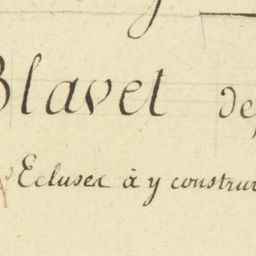 Blavet de
Ecluses à y constru